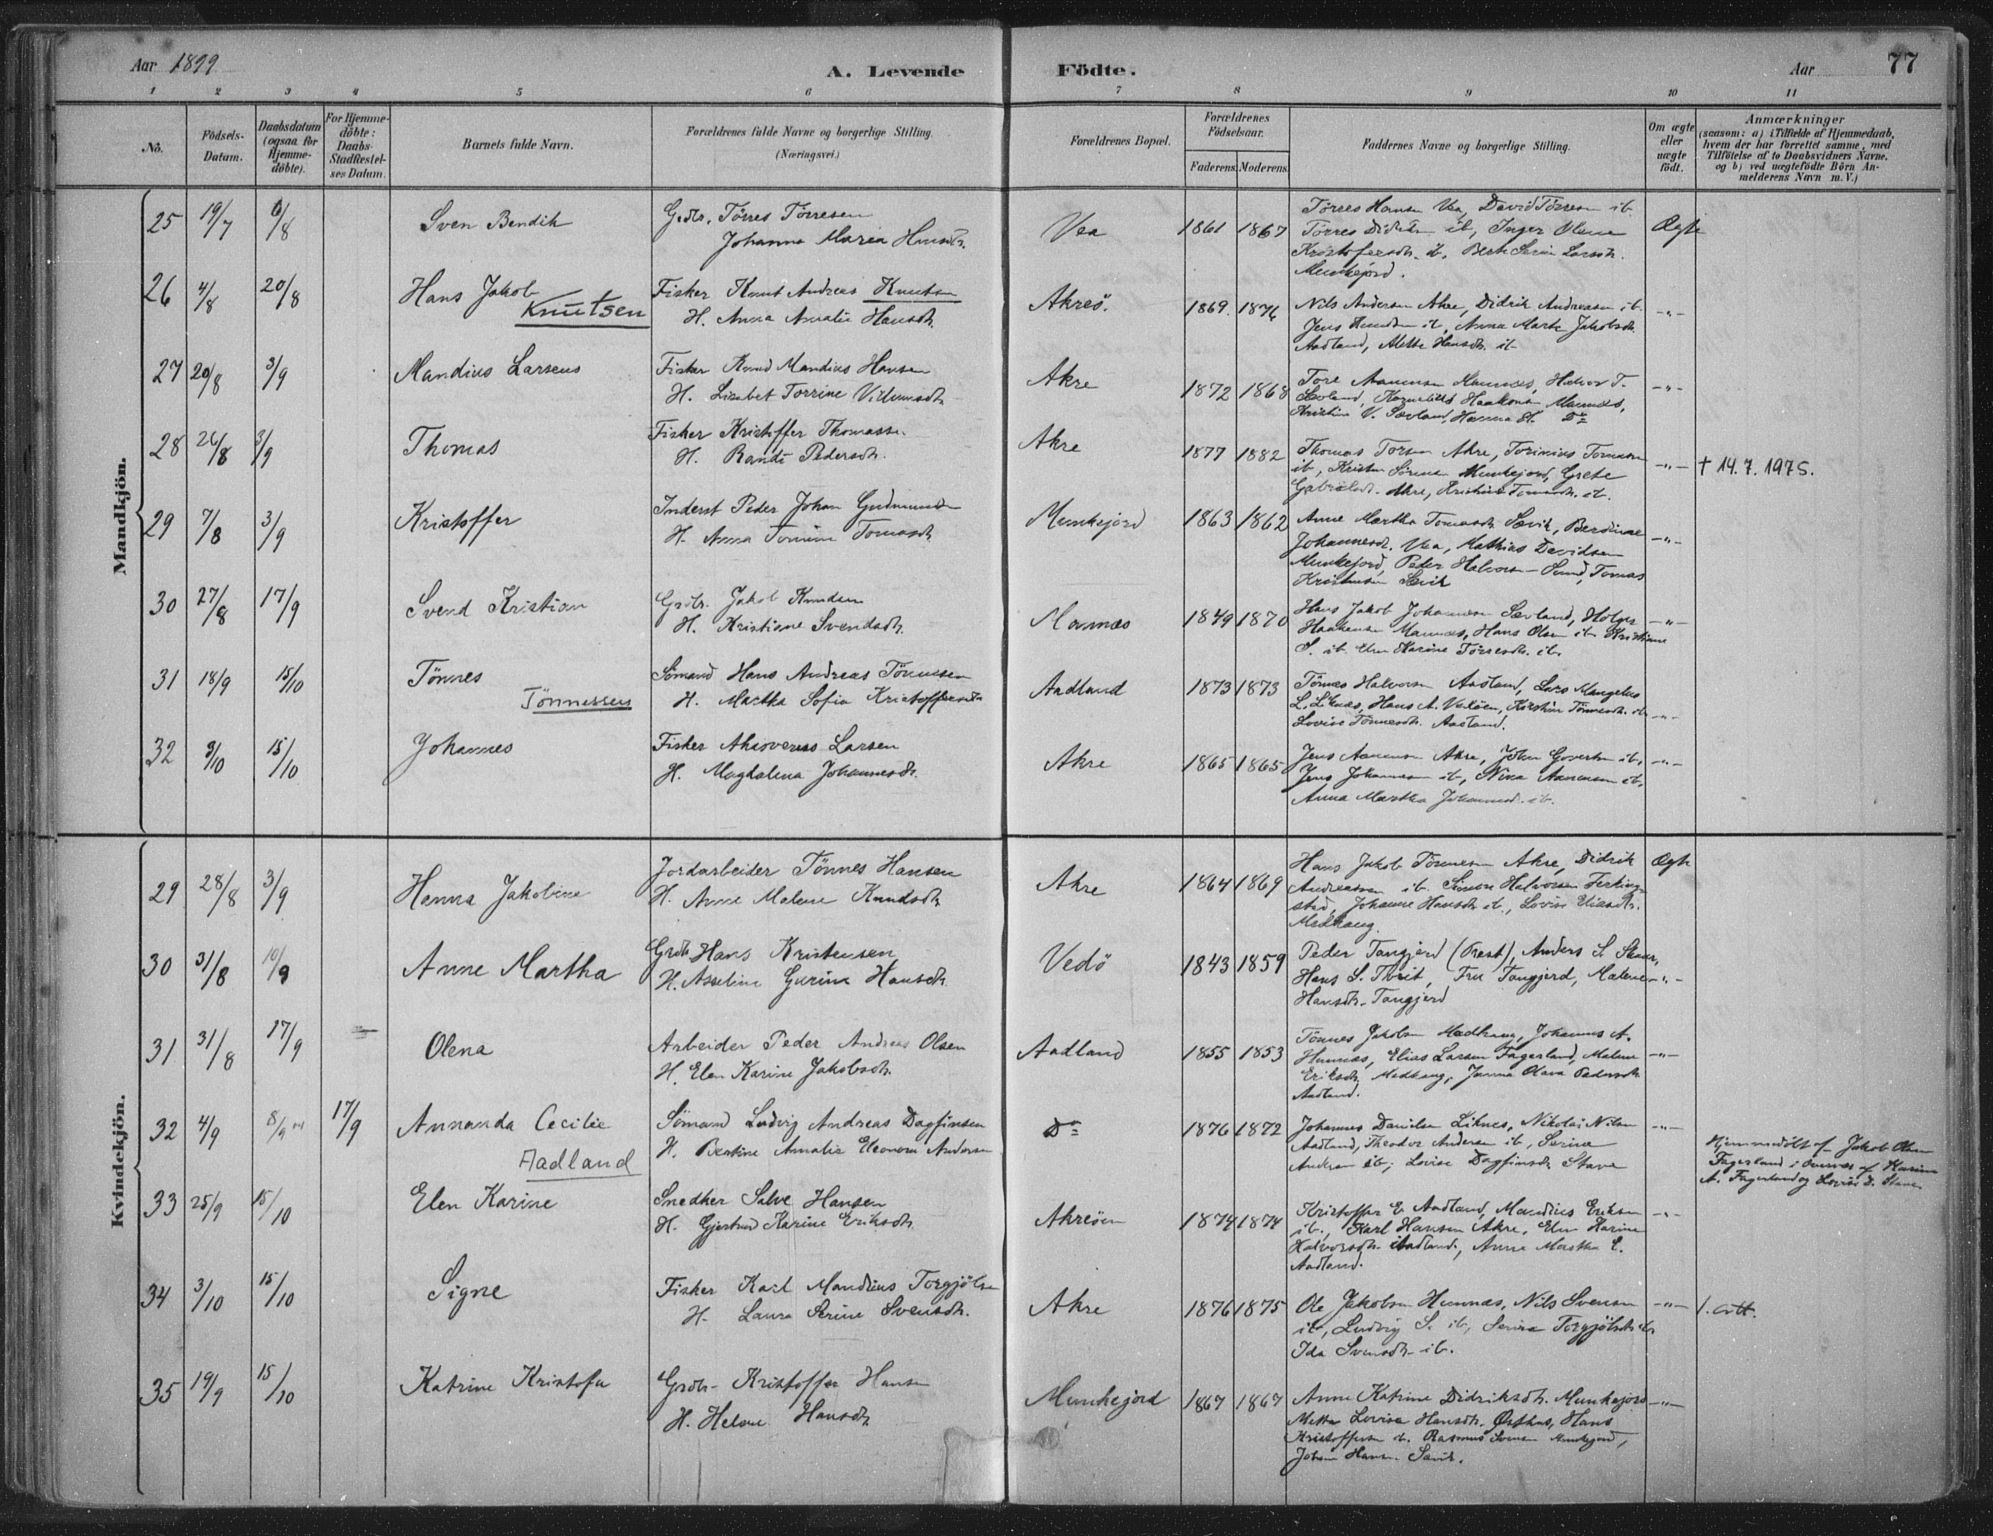 Aar 1899
A. Levende Födte.
Aar 77
1 2 3 4 5 6 7 8 9 10 11
No.
Födsels-
Datum.
Daabsdatum
(ogsaa for
Hjemme-
döbte).
For Hjemme-
döbte:
Daabs-
Stadfæstel-
ses Datum.
Barnets fulde Navn.
Forældrenes fulde Navne og borgerlige Stilling.
(Næringsvei.)
Forældrenes Bopæl.
Forældrenes
Födselsaar.
Faderens. Moderens.
Faddernes Navne og borgerlige Stilling.
Om ægte
eller
uægte
födt.
Anmærkninger
(saasom: a) i Tilfælde af Hjemmedaab,
hvem der har forrettet samme, med
Tilföielse af to Daabsvidners Navne,
og b) ved uægtefödte Börn An-
melderens Navn m. V.)
Mandkjön.
25 19/7 6/8 Sven Bendik
Tørres Tørresen
Johanna Maria
Vea 1861 1867
Tørres Hansen Vea, David Tørresen ib.
Tørres ib, Inger Olena
ib, Larsdtr.
Munkejord.
Ægte
26 4/8 20/8 Hans Jakob
Knutsen
Fisker Knut Andreas Knutsen
H. Anna Amalie Hansdtr.
Akreö. 1869. 1876
Nils Andersen Akre, Didrik Andreassen ib.
Jens Knudsen ib, Anna Marta Jakobsdtr.
Aadland, Mette Hansdtr. ib
-"-
27 20/8 3/9 Mandius Larsens
Fisker Knud Mandius Hansen
H. Lisabet Torrine
Akre 1872 1868
Tore Mannæs, Halvor T.
Sævland, Haakonsen Mannæs,
Kristine V. Sævland, Hanna Do
-"-
28 26/8 3/9 Thomas
Fisker Kristoffer Thomasse.
H. Randi Pedersdtr.
Akre 1877 1882
Thomas Akre,
ib, Munkejord, Grete
Akre, ib.
-"- † 14.7.1975.
29 7/8 3/9 Kristoffer
Inderst Peder Johan
H. Anna Tomasdtr.
Munkejord 1863 1862
Anne Martha Tomasdtr. Sævik,
Johannesdtr. Vea, Mathias Davidsen
Munkejord, Peder Halvorsen Sund, Tomas
Kristensen Sævik
-"-
30 27/8 17/9 Svend Kristian
Grdbr. Jakob Knudsen
H. Kristiane Svendsdtr.
Mannæs 1849 1870
Hans Jakob Johannesen Sævland, Holger
Haakonsen Mannæs, Hans Olsen ib Kristiane
S. ib. Elen Karine Tørresdtr. ib.
-"-
31 18/9 15/10 Tönnes
Tönnessen
Sømand Hans Andreas Tönnessen
H. Martha Sofia Kristoffersdtr
Aadland 1873 1873
Tönnes Halvorsen Aadland, Lars
L. Liknæs, Hans A. Kristine Tönnesdtr. ib.
Lovise Tönnesdtr. Aadland.
-"-
32 9/10 15/10 Johannes
Fisker Larsen
H. Magdalena Johannesdtr.
Akre 1865 1865
Jens Akre, John ib.
Jens Johannesen ib, ib,
Anna Martha Johannesd. ib.
-"-
Kvindekjön.
29 28/8 3/9 Hanna Jakobine
Jordarbeider Tönnes Hansen
H. Anne Malene Knudsdtr
Akre 1864 1869
Hans Jakob Tönnesen Akre, Didrik
Andreassen ib. Simon Halvorsen Ferking-
stad, Johanne Hansdtr ib, Lovise Eliasdtr.
Medhaug.
Ægte
30 31/8 10/9 Anne Martha
Grdb. Hans Kristensen
H. Asseline Gurina Hansdtr.
Vedö 1843 1859
Peder Tangjerd (Prest), Anders S.
Hans S. Fru Tangjerd, Malene
Hansdtr. Tangjerd
-"-
31 31/8 17/9 — Olena
Arbeider Peder Andreas Olsen
H. Elen Karine Jakobsdtr.
Aadland 1855 1853
Tönnes Jakobsen Medhaug, Johannes A.
Hemnæs, Elias Larsen Fagerland, Malene
Eriksdtr. Medhaug, Janna Olava Pedersdtr
Aadland.
-"-
32 4/9 8/9 17/9 Annanda Cecilie
Aadland
Sömand Ludvig Andreas Dagfinsen
H. Bertine Amalie Eleonora Andersen
Do 1876 1872
Johannes Danielsen Liknes, Nikolai Nilsen
Aadland, Theodor Andersen ib, Serine
Andersen ib, Lovise Dagfinsdtr. Stave
-"-
Hjemmedöbt af Jakob Olsen
Fagerland i Overvær af Karine
A. Fagerland og Lovise D. Stave
33 25/9 15/10 Elen Karine
Snedker Salve Hansen
H. Gjertrud Karine Eriksdtr.
Akreöen 1874 1874
Kristoffer E. Aadland, Mandius Eriksen
ib, Karl Hansen Akre, Elen Karine
Halvorsdtr. Aadland, Anne Martha E.
Aadland.
-"-
34 3/10 15/10 Signe
Fisker Karl Mandius Torgjölsen
H. Laura Serine Svensdtr.
Akre 1876 1875
Ole Jakobsen Hemnæs, Nils Svensen
ib, Ludvig S. ib, Serina Torgjölsdtr. ib
Ida Svensdtr. ib.
-"- 1. att.
35 19/9 15/10 Katrine Kristofa
Grdbr. Kristoffer Hansen
H. Helene Hansdtr
Munkejord 1867 1867
Anne Katrine Didriksdtr. Munkejord
Mette Lovise Hansdtr. Østhus, Hans
Kristoffersen ib. Rasmus Svensen Munkejord,
Johan Hansen Sævik.
-"-